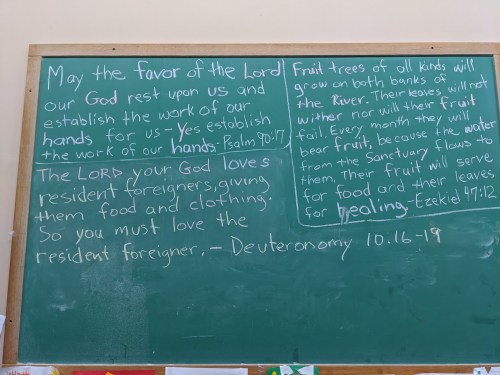 May the favor of the Lord
our God rest upon us and
establish the work of our
hands for us - Yes establish
the work of our hands.- Psalm 90:17
Fruit trees of all kinds will
grow on both banks of
the River. Their leaves will not
wither nor will their fruit
fail. Every month they will
bear fruit, because the water
from the Sanctuary flows to
them. Their fruit will serve
for food and their leaves
for healing.-Ezekiel 47:12
The LORD your God loves
resident foreigners, giving
them food and clothing.
So you must love the
resident foreigner. - Deuteronomy 10:16-19